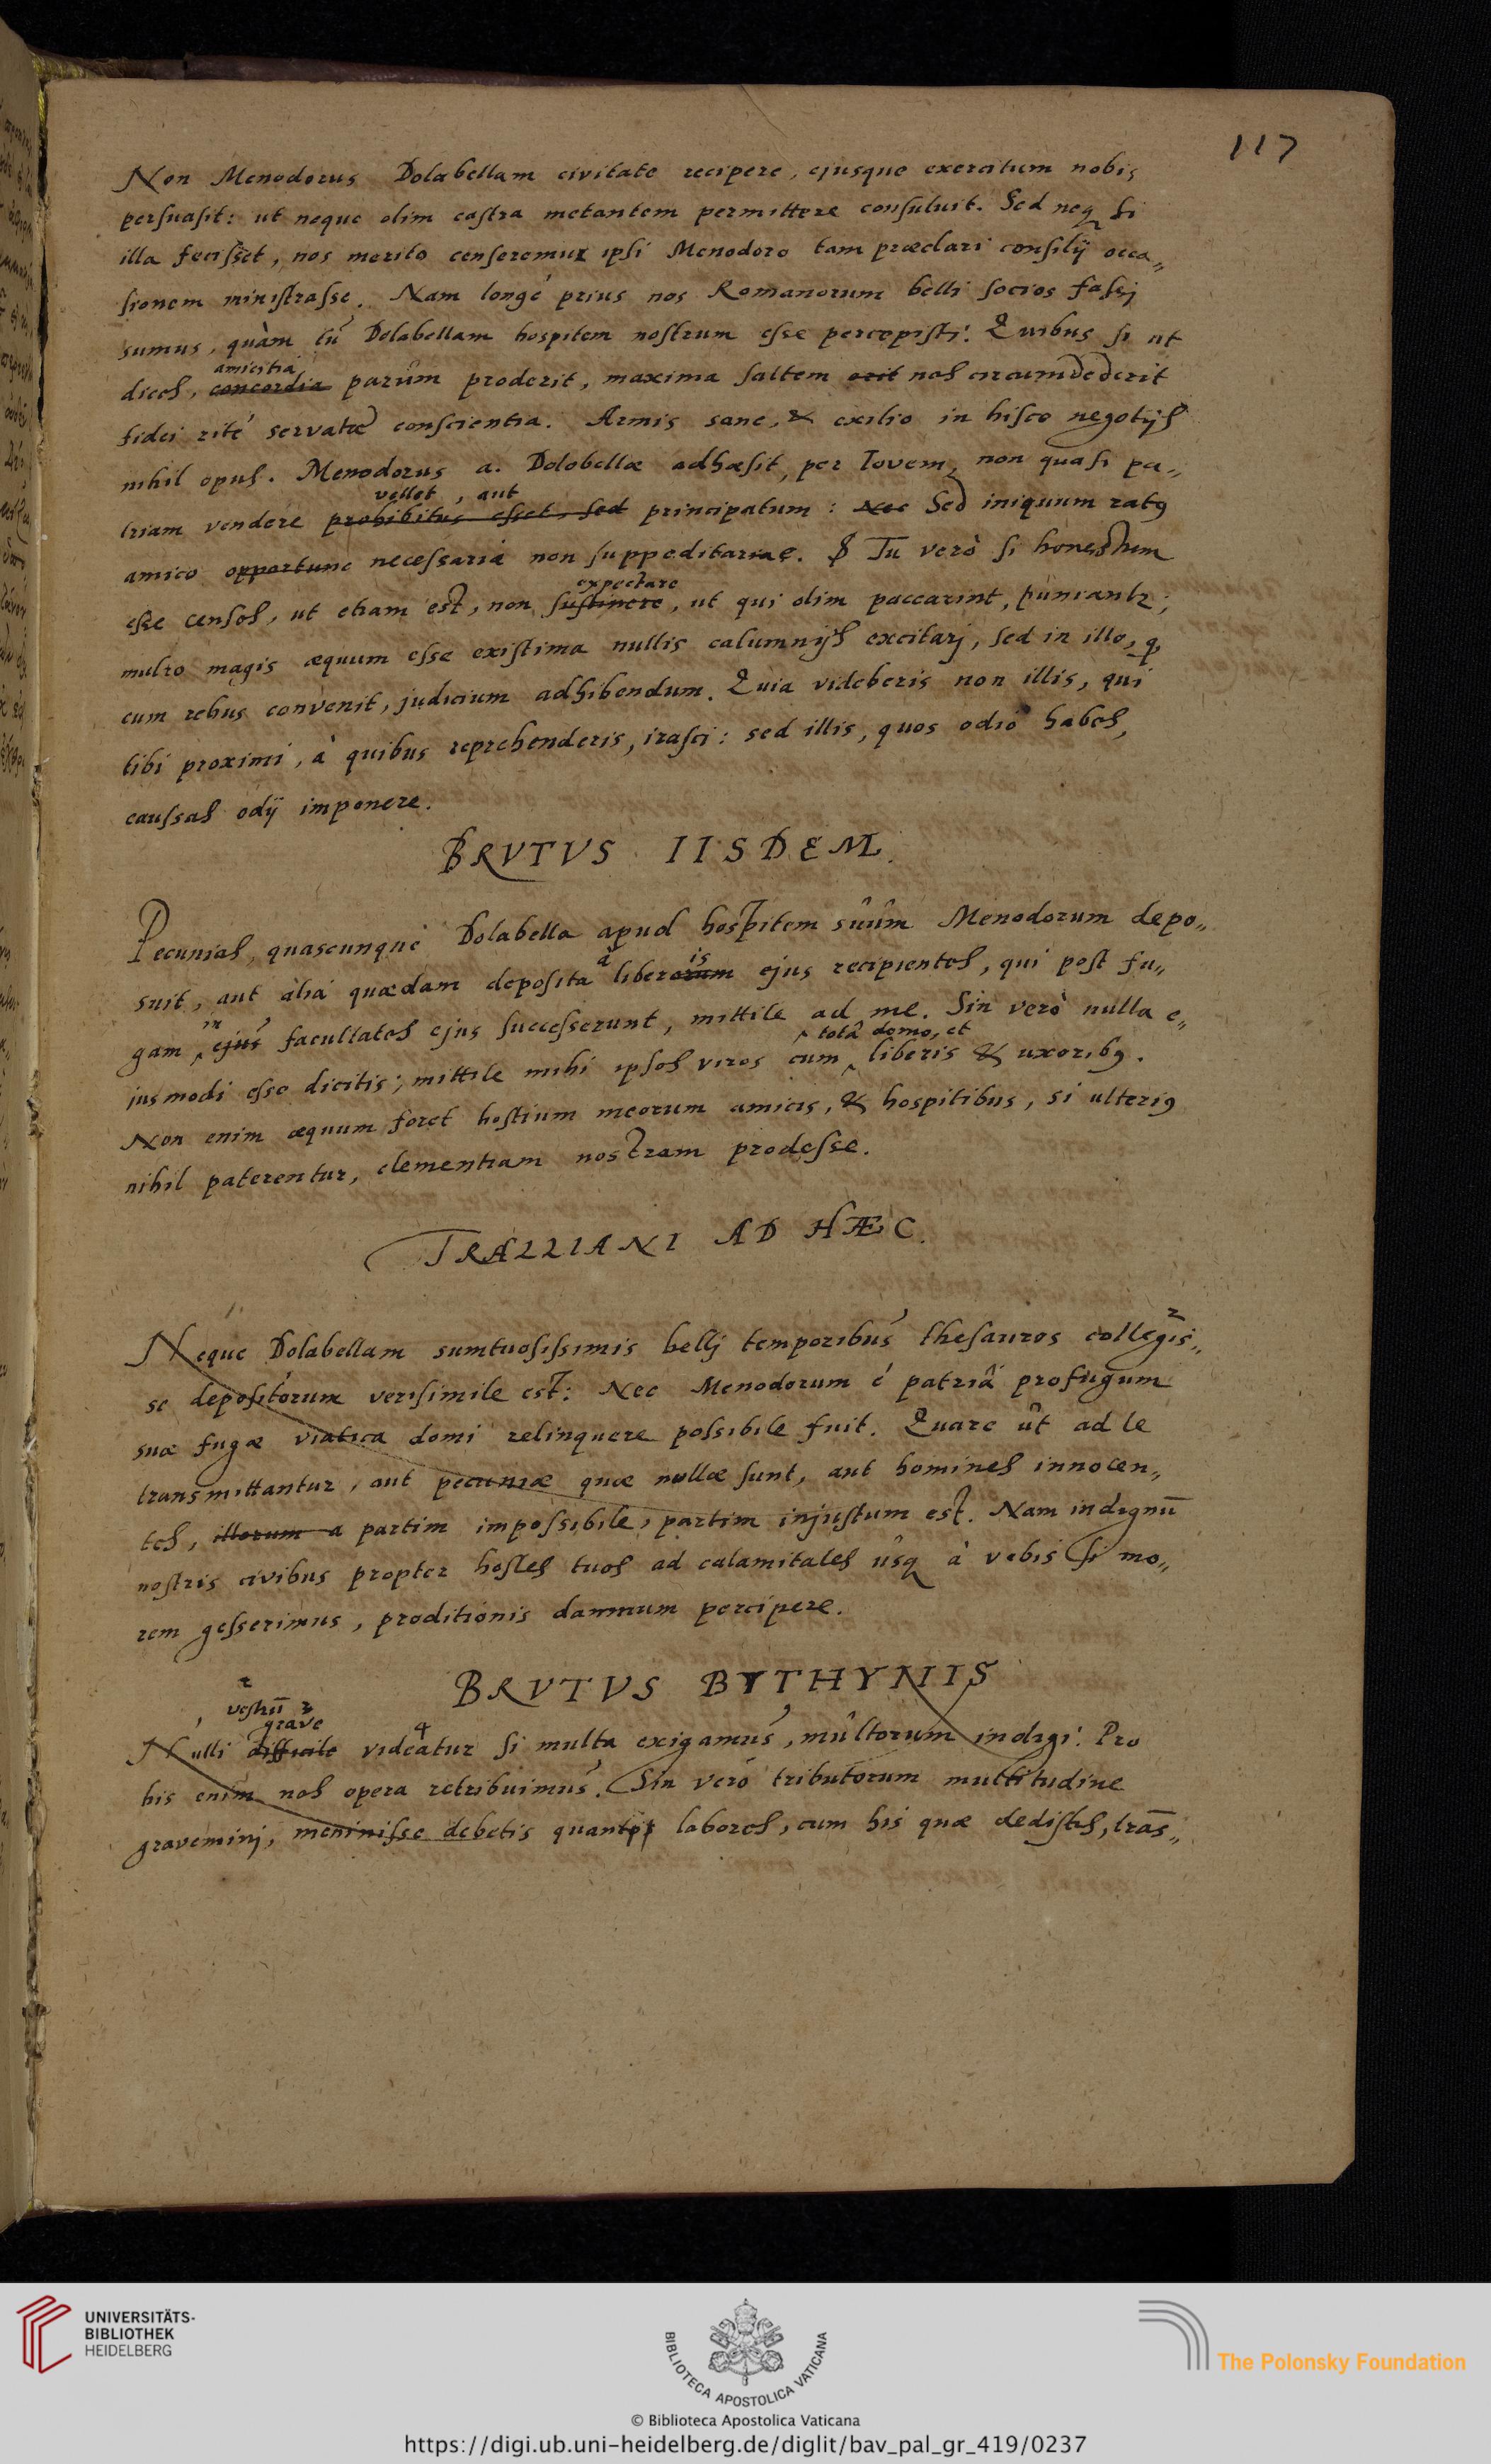 117
Non Menodorus Dolabellam civitate recipere, ejusque exercitum nobis
persuasit: ut neque olim castra metantem permittere consuluit. Sed neq si
illa fecisset, nos merito censeremur ipsi Menodoro tam præclari consilij occa„
sionem ministrasse. Nam longé prius nos Romanorum belli socios fassj
sumus, quàm tu Dolabellam hospitem nostrum esse percepisti. Quibus si ut
amicitia
dices, concordia parum proderit, maxima saltem erit nos circumdederit
fidei rité servatæ conscientia. Armis sane, & exilio in hisce negotijs
nihil opus. Menodorus a. Dolobellæ adhæsit, per Iovem, non quasi pa„
vellet, aut
triam vendere prohibitus esset, sed principatum: nec Sed iniquum ratus
amico opportune necessaria non suppeditariae. Tu verò si honestum
expectare
esse censes, ut etiam est, non sustinere, ut qui olim peccarint, puniantr;
multo magis æquum esse existima nullis calumnijs excitarj, sed in illo, q
cum rebus convenit, judicium adhibendum. Quia videberis non illis, qui
tibi proximi, à quibus reprehenderis, irasci: sed illis, quos odio habes,
caussas odij imponere.
BRVTVS IISDEM.
Pecunias, quascunque Dolabella apud hospitem suum Menodorum depo„
à is
suit, aut alia quædam deposita liberorum ejus recipientes, qui post fu„
in
gam ejus facultates ejus successerunt, mittite ad me. Sin verò nulla e„
totâ domo, et
jusmodi esse dicitis; mittite mihi ipsos viros cum liberis & uxoribus.
Non enim æquum foret hostium meorum amicis, & hospitibus, si ulterius
nihil paterentur, clementiam nostram prodesse.
TRALLIANI AD HÆC.
Neque Dolabellam sumtuosissimis bellj temporibus thesauros collegis„
se depositorum verisimile est: Nec Menodorum é patriâ profugum
suæ fugæ viatica domi relinquere possibile fuit. Quare ut ad te
transmittantur, aut pecuniæ quæ nullæ sunt, aut homines innocen„
tes, illorum a partim impossibile, partim injustum est. Nam indignū
nostris civibus propter hostes tuos ad calamitates usq à vobis si mo„
rem gesserimus, proditionis damnum percipere.
BRVTVS BYTHYNIIS
vestrū
grave
Nulli difficile videatur si multa exigamus, multorum indigi. Pro
his enim nos opera retribuimus. Sin veró tributorum multitudine
graveminj, meninisse debetis quantos labores, cum his quæ dedistis, trās„
UNIVERSITÄTS-
BIBLIOTHEK
HEIDELBERG
BIBLIOTECA APOSTOLICA VATICANA
The Polonsky Foundation
© Biblioteca Apostolica Vaticana
https://digi.ub.uni-heidelberg.de/diglit/bav_pal_gr_419/0237